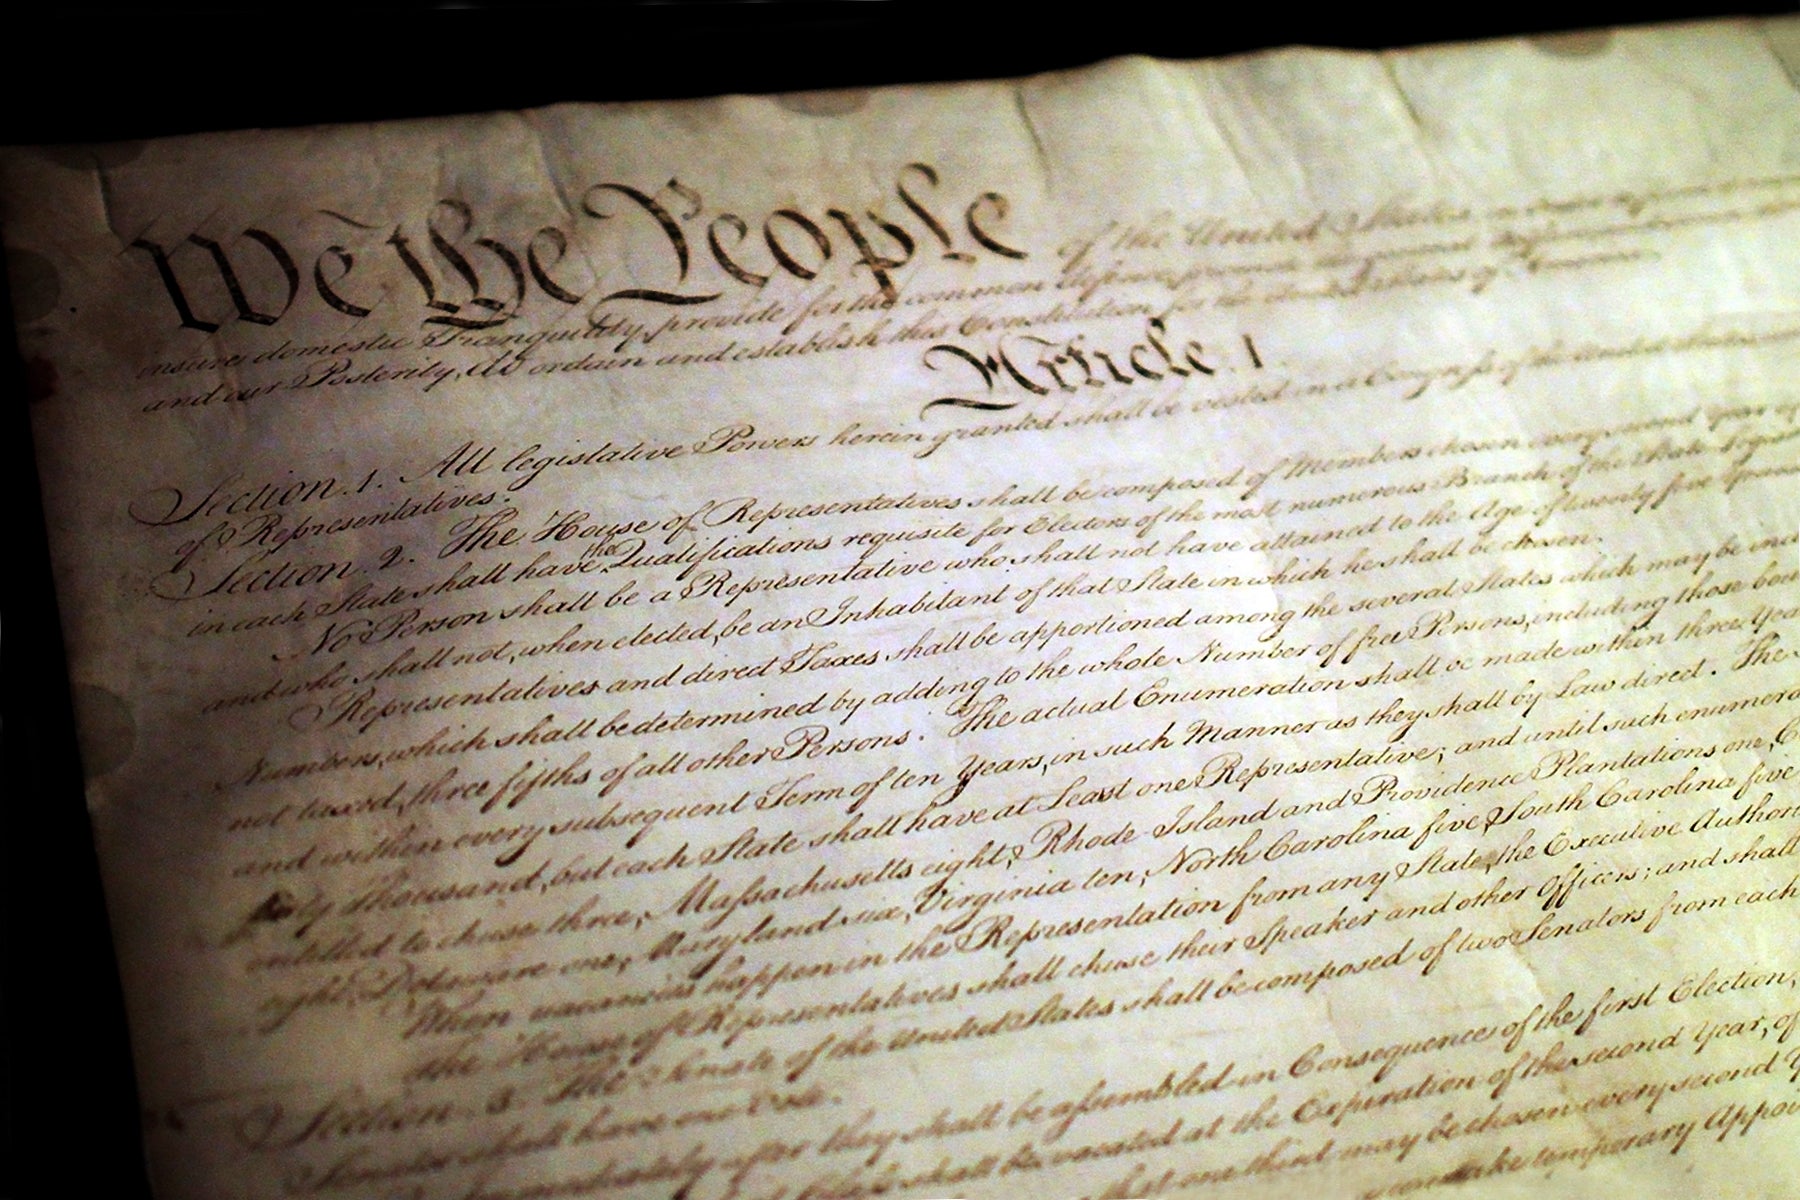 We the People of the United States
insure domestic Tranquility, provide for the common defence, promote
and our Posterity, do ordain and establish this Constitution for the
Article. I.
Section. 1. All legislative Powers herein granted shall be vested in a Congress of the United States
of Representatives.
Section. 2. The House of Representatives shall be composed of Members chosen every second Year
in each State shall have the Qualifications requisite for Electors of the most numerous Branch of the State
No Person shall be a Representative who shall not have attained to the Age of twenty five Years
and who shall not, when elected, be an Inhabitant of that State in which he shall be chosen.
Representatives and direct Taxes shall be apportioned among the several States which may be
Numbers, which shall be determined by adding to the whole Number of free Persons, including those
not taxed, three fifths of all other Persons. The actual Enumeration shall be made within three Years
and within every subsequent Term of ten Years, in such Manner as they shall by Law direct. The
thirty Thousand, but each State shall have at Least one Representative; and until such
entitled to chuse three, Massachusetts eight, Rhode-Island and Providence Plantations one,
eight, Delaware one, Maryland six, Virginia ten, North Carolina five, South Carolina five
When vacancies happen in the Representation from any State, the Executive
the House of Representatives shall chuse their Speaker and other Officers; and shall
Section. 3. The Senate of the United States shall be composed of two Senators from each
Senator shall have one Vote.
Immediately after they shall be assembled in Consequence of the first Election,
shall be vacated at the Expiration of the second Year, of
that one third may be chosen every second
make temporary